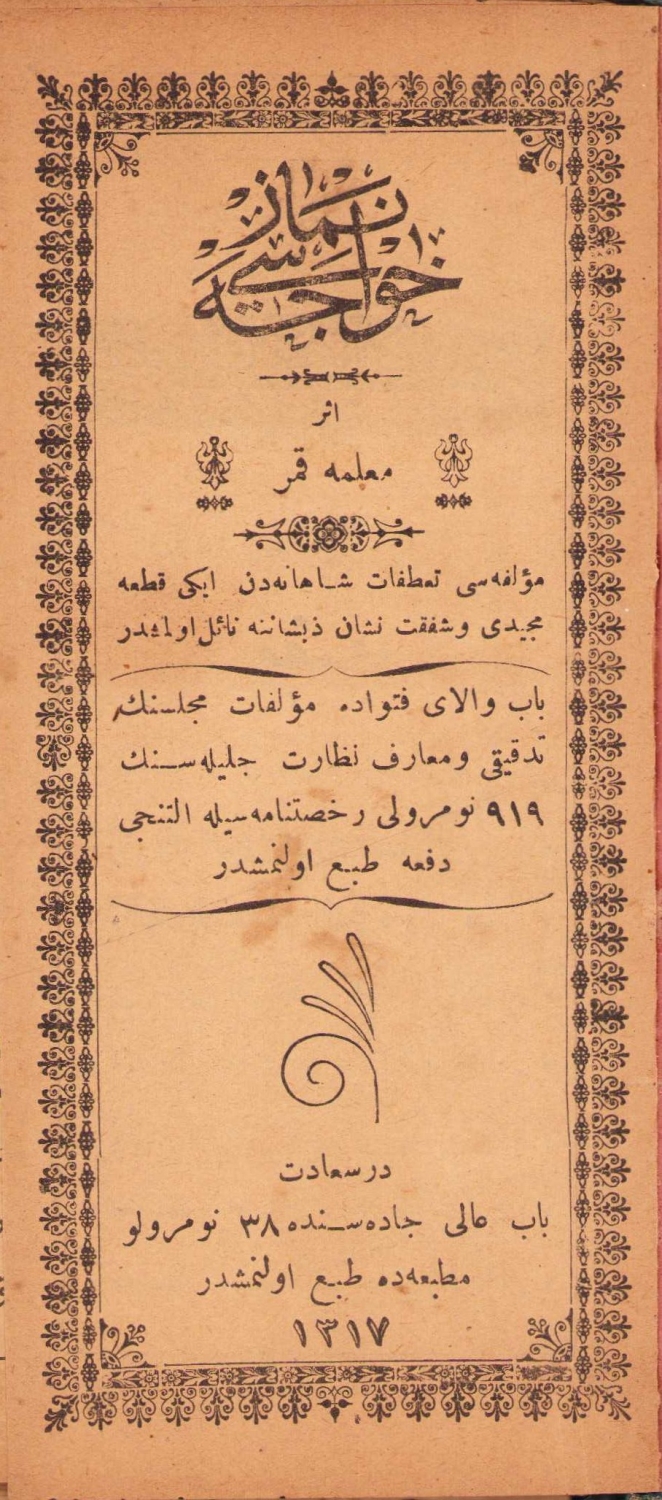 نماز
خواجه سی
اثر
معلمه قمر
مؤلفه‌سی تعطفات شاهانه‌دن ایکی قطعه
مجیدی و شفقت نشان ذیشاننه نائل اولمشدر
باب والای فتواده مؤلفات مجلسنك
تدقیقی و معارف نظارت جلیله‌سنك
٩١٩ نومرولی رخصتنامه‌سیله التنجی
دفعه طبع اولنمشدر
درسعادت
باب عالی جاده‌سنده ٣٨ نومرولو
مطبعه‌ده طبع اولنمشدر
١٣١٧